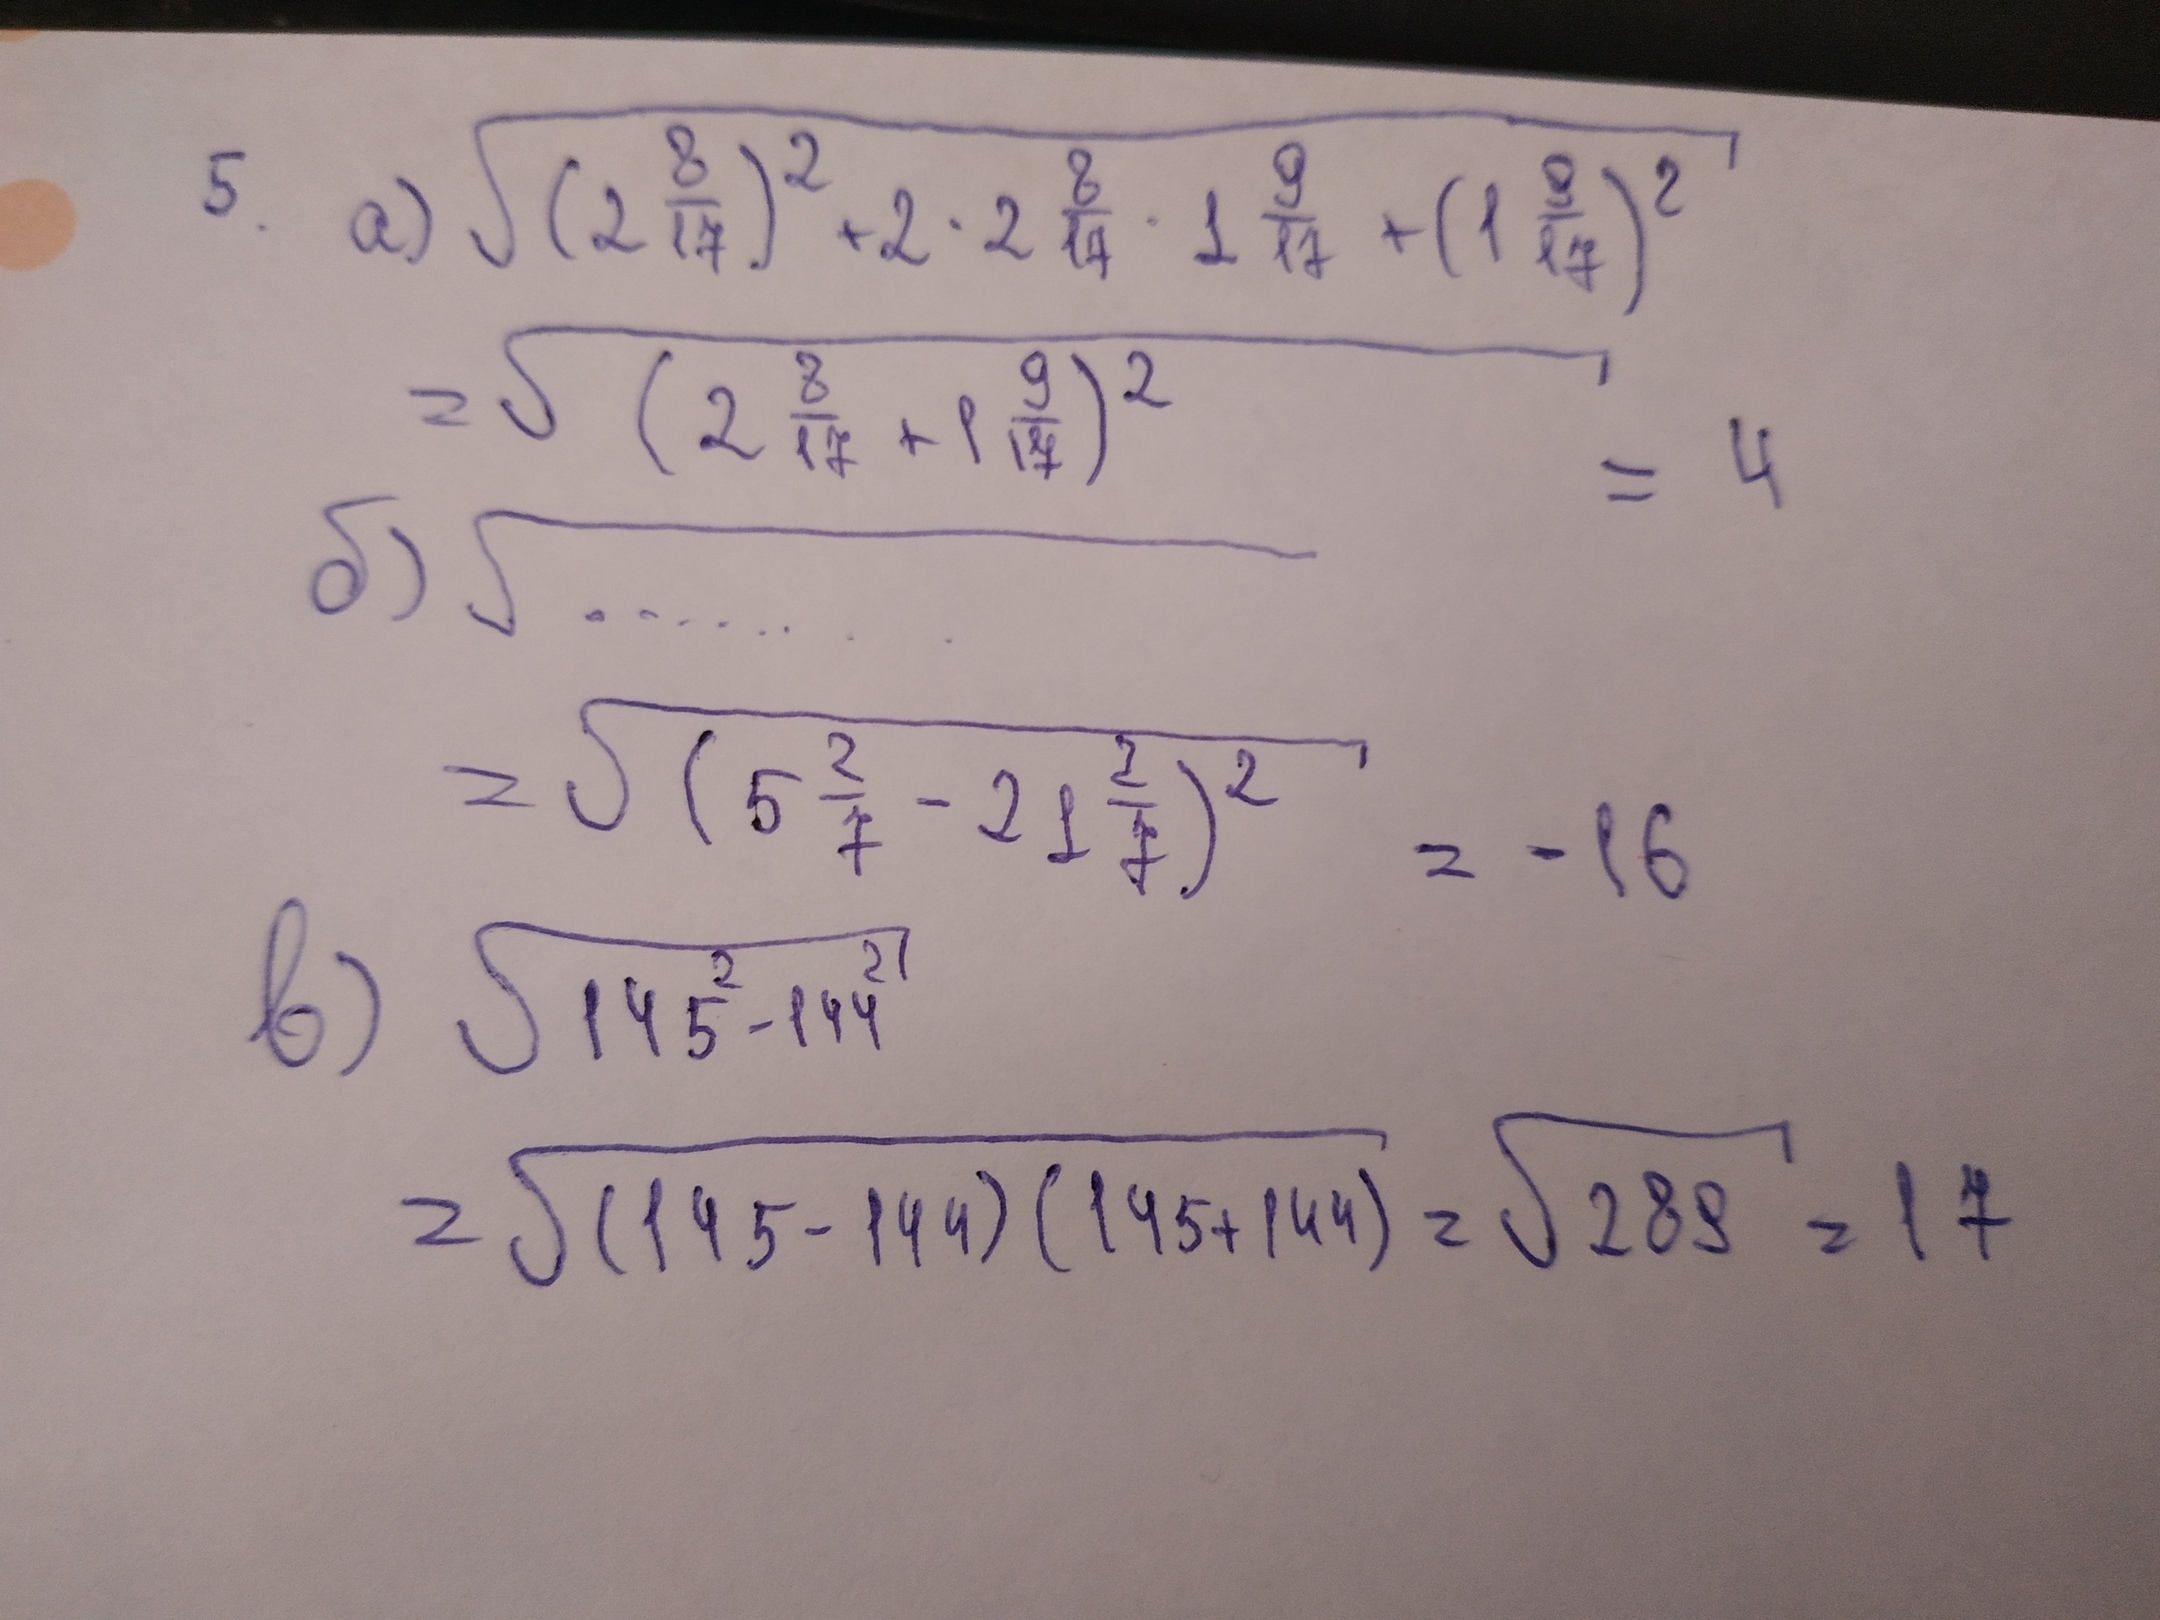 5. а) √((2 8/17)² + 2 · 2 8/17 · 1 9/17 + (1 9/17)²)
= √((2 8/17 + 1 9/17)²) = 4
б) √.........
= √((5 2/7 - 21 2/7)²) = -16
в) √(145² - 144²)
= √((145 - 144)(145 + 144)) = √289 = 17